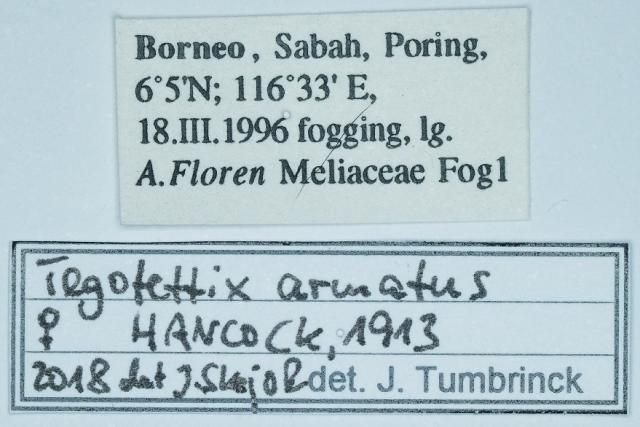 Borneo, Sabah, Poring,
6°5'N; 116°33' E,
18.III.1996 fogging, lg.
A.Floren Meliaceae Fog1
Tegotettix armatus
♀ HANCOCK, 1913
2018 det J. det. J. Tumbrinck